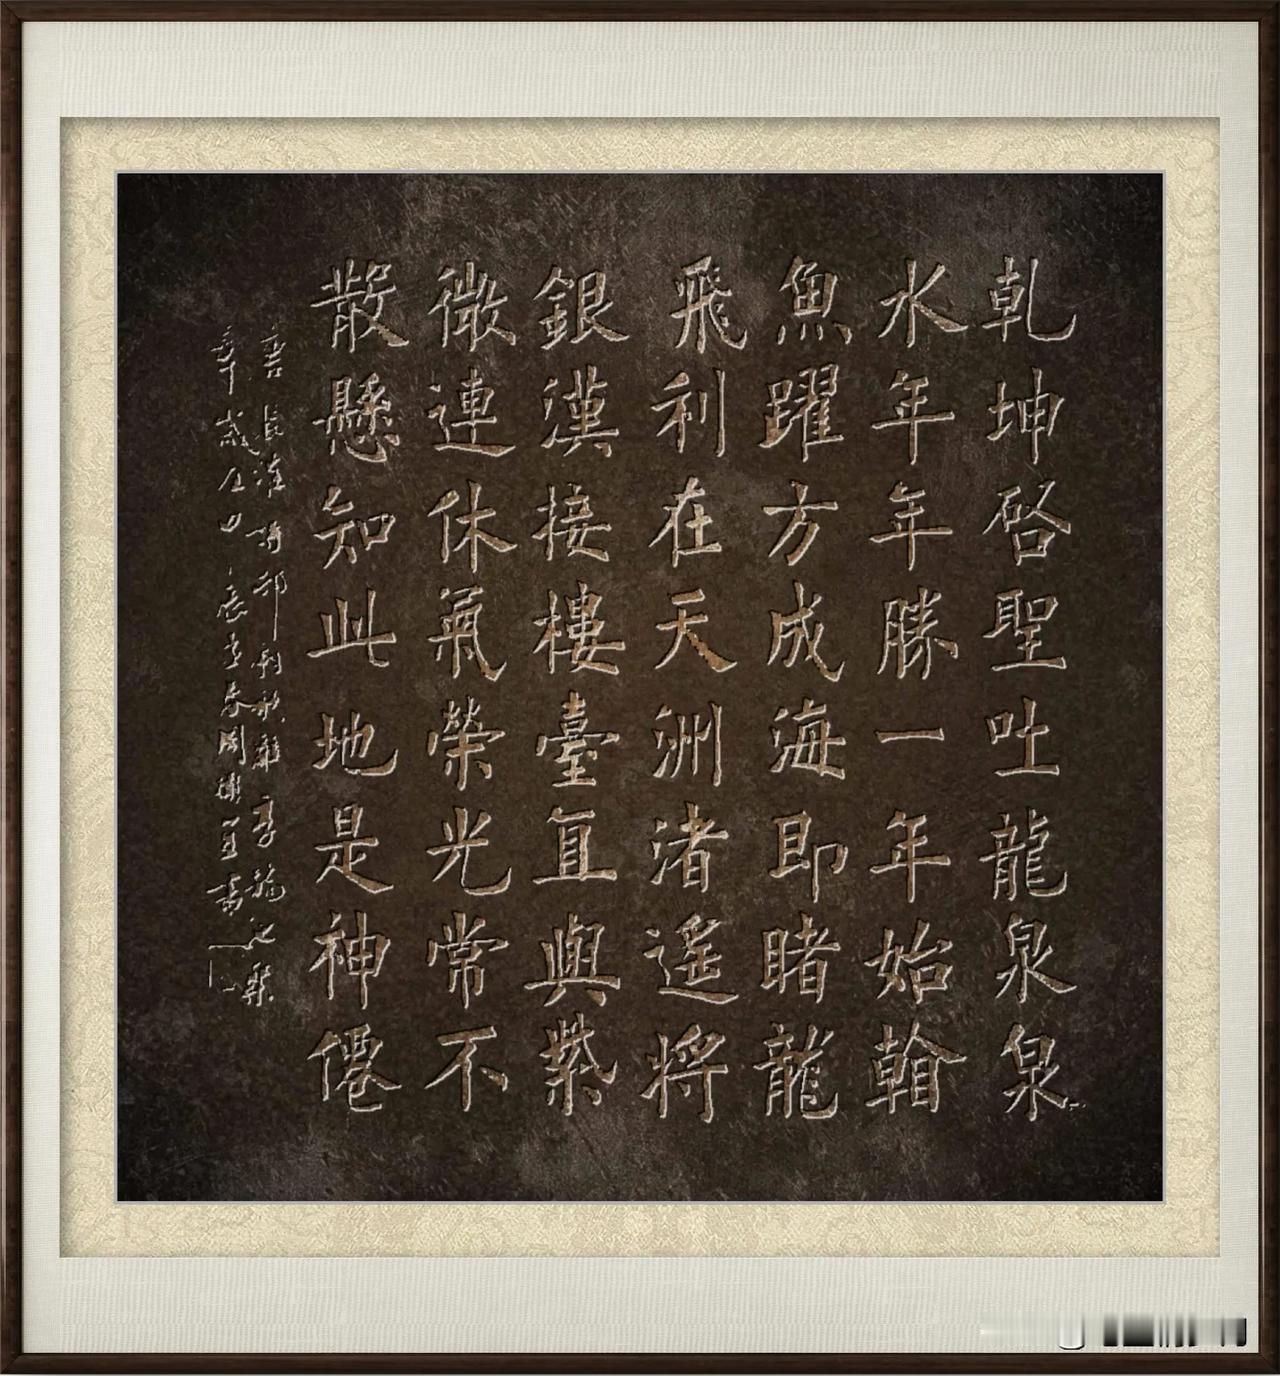 乾坤啓聖吐龍泉泉
水年年勝一年始翰
魚躍方成海即睹龍
飛利在天洲渚遥將
銀漢接樓臺直與紫
微連休氣榮光常不
散懸知此地是神僊